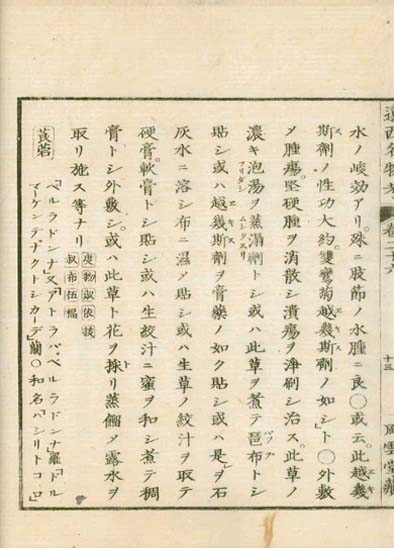 遠西名物考
卷二十六
十三
風雲堂藏
水ノ峻効アリ。殊ニ肢節ノ水腫ニ良〇或云。此越幾
斯劑ノ性功大約雙鸞菊越幾斯劑ノ如シ」ト〇外敷
メ腫瘍。堅硬腫ヲ消散シ潰瘍ヲ淨刷シ治ス。此草ノ
濃キ泡湯ヲ蒸溻劑トシ或ハ此草ヲ煮テ琶布トシ
貼シ或ハ越幾斯劑ヲ膏藥ノ如ク貼シ或ハ是ヲ石
灰水ニ溶シ布ニ濕メ貼シ或ハ生草ノ絞汁ヲ取テ
硬膏。軟膏トシ貼シ或ハ生絞汁ニ蜜ヲ和シ煮テ稠
膏トシ外敷シ。或ハ此草ト花ヲ採リ蒸餾メ露水ヲ
取リ施ス等ナリ
莨菪
「ベルラドンナ」又「アトラバ・ベルラドンナ」羅「ドル
マーケンデナクトシカーデ」蘭〇和名「ハシリトコロ」